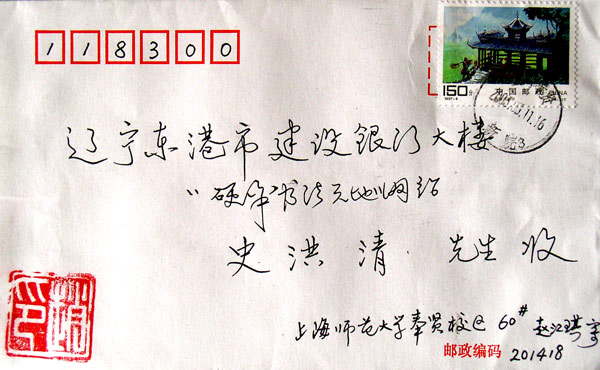 118300
150分
中国邮政 CHINA
辽宁东港市建设银行大楼
"硬笔书法天地"网站
史洪清 先生收
上海师范大学奉贤校区60# 赵江琪寄
邮政编码 201418